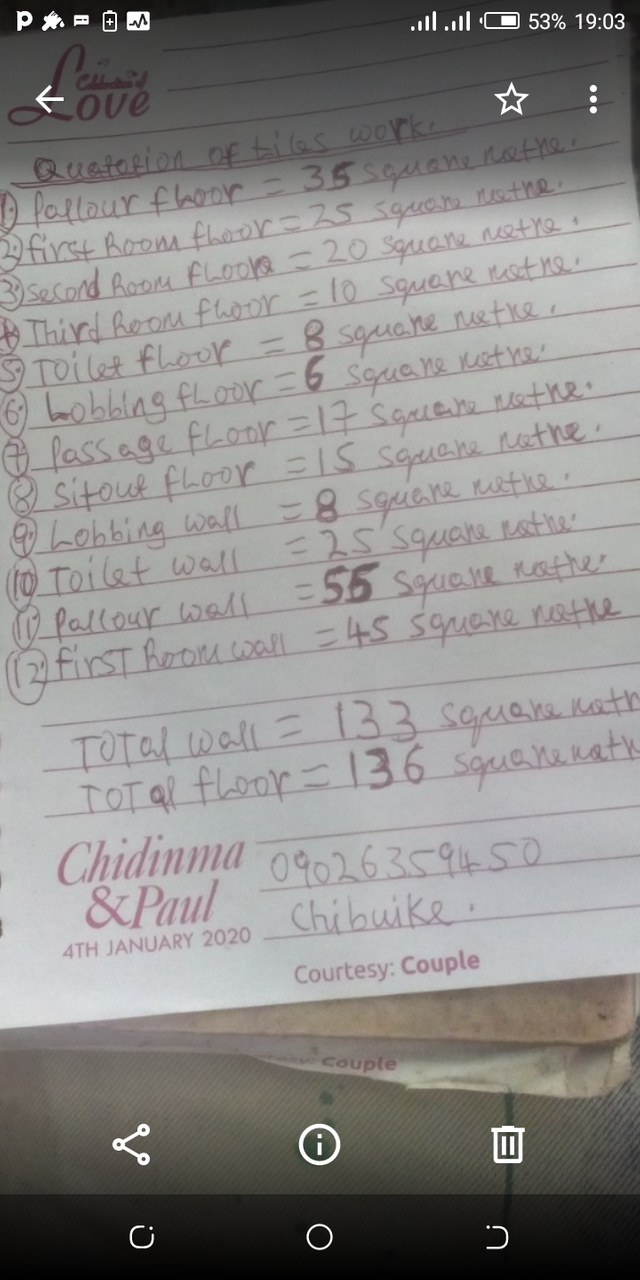 53% 19:03
Love
Quotation of tiles work.
1. Pallour floor = 35 square metre.
2. first Room floor = 25 square metre.
3. second Room floor = 20 square metre.
4 Third Room floor = 10 square metre.
5. Toilet floor = 8 square metre.
6. Lobbing floor = 6 square metre.
7 Passage floor = 17 square metre.
8 Sitout floor = 15 square metre.
9. Lobbing wall = 8 square metre.
10 Toilet wall = 25 square metre.
11 Pallour wall = 55 square metre.
12. first Room wall = 45 square metre
Total wall = 133 square metr
Total floor = 136 square metr
Chidinma
&Paul
4TH JANUARY 2020
09026359450
Chibuike.
Courtesy: Couple
Couple